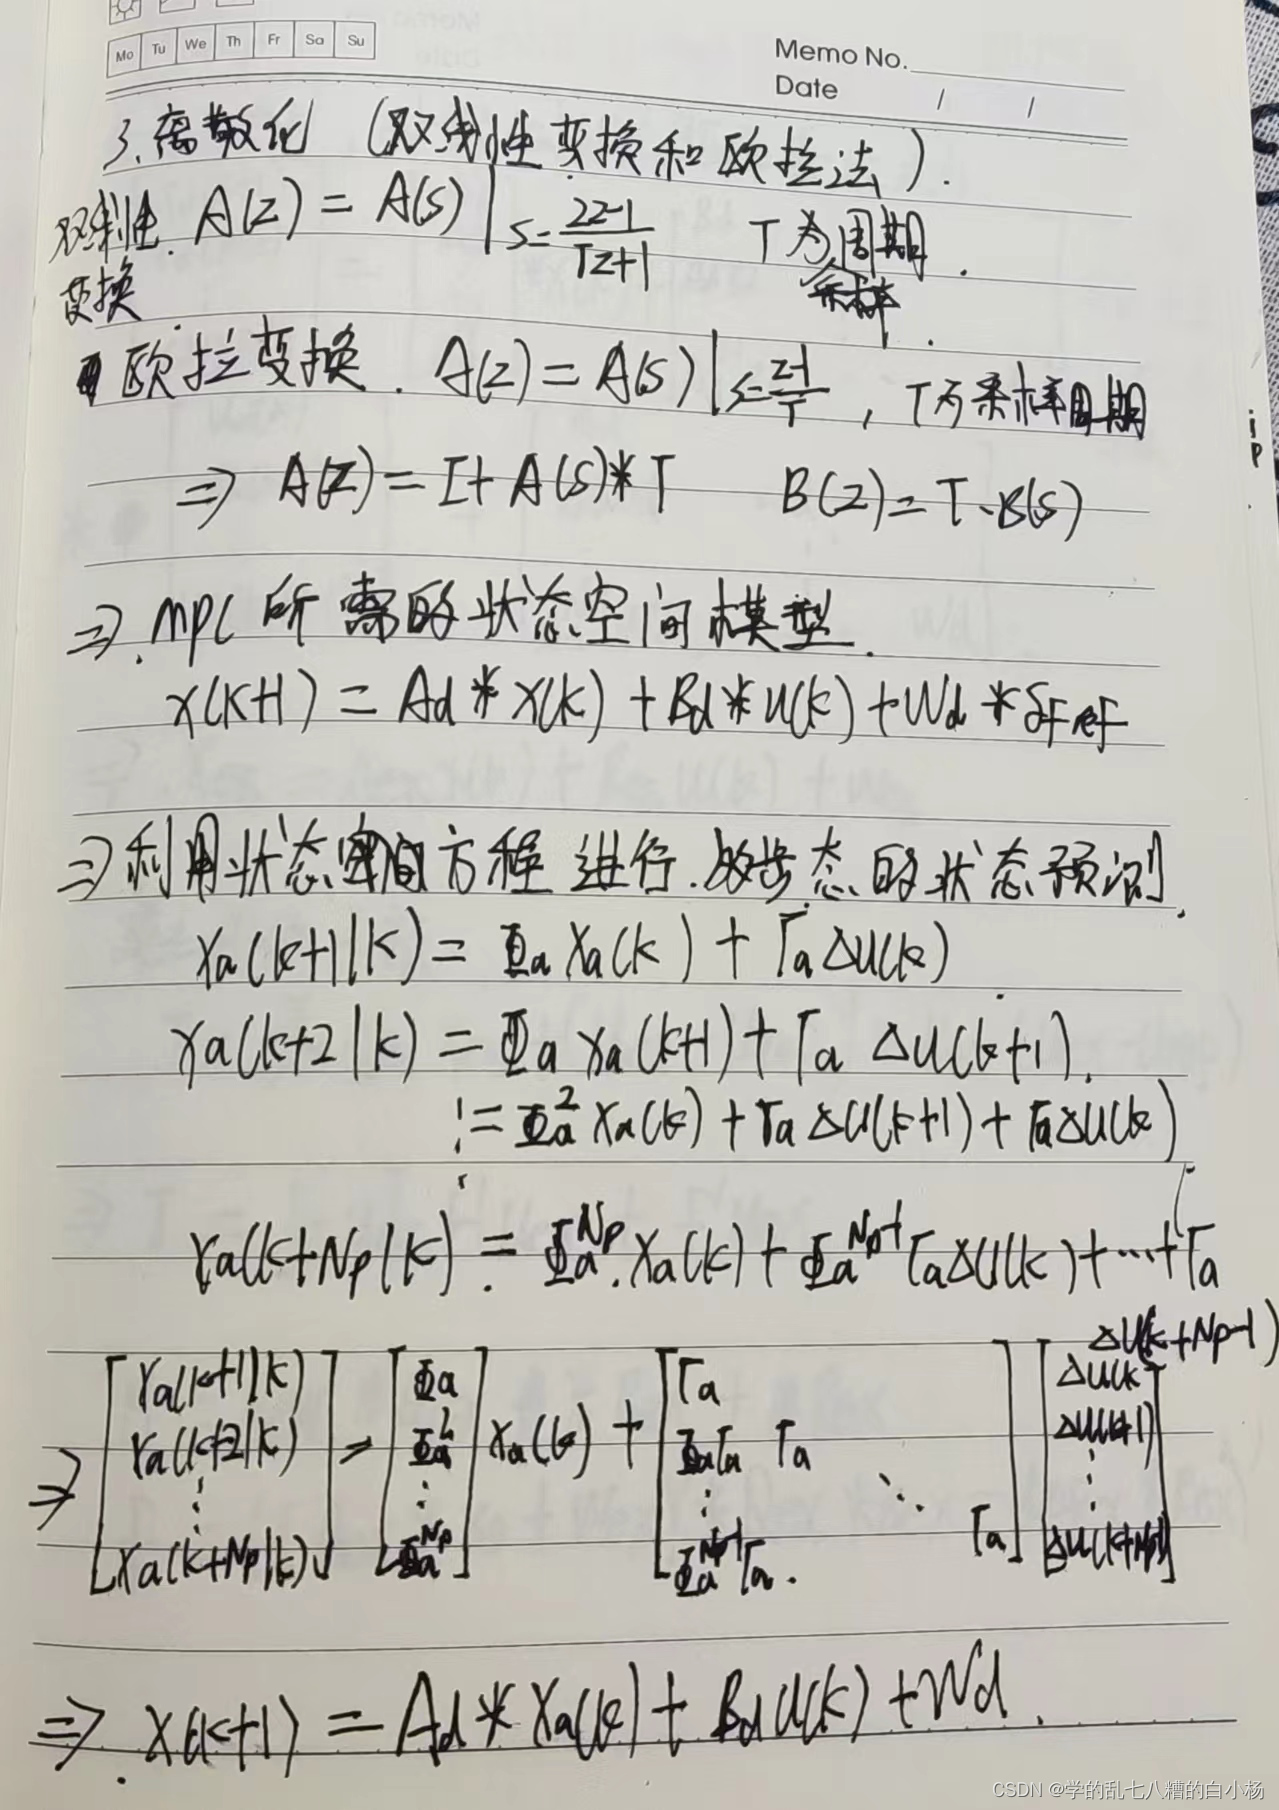 Mo Tu We Th Fr Sa Su
Memo No.
Date / /
3. 离散化 (双线性变换和欧拉法).
双线性变换. A(z) = A(s) | s = 2z-1 / Tz+1 T为采样周期.
欧拉变换. A(z) = A(s) | s = z-1 / T , T为采样周期
⇒ A(z) = I + A(s)*T B(z) = T·B(s)
⇒. mpc 所需的状态空间模型.
x(k+1) = Ad * x(k) + Bd * u(k) + Wd * δFref
⇒ 利用状态空间方程 进行. 步态的状态预测.
xa(k+1|k) = Φa xa(k) + Γa Δu(k)
xa(k+2|k) = Φa xa(k+1) + Γa Δu(k+1).
⋮ = Φa² xa(k) + Γa Δu(k+1) + Γa Δu(k)
xa(k+Np|k) = Φa^Np · xa(k) + Φa^Np-1 Γa Δu(k) + ⋯ + Γa
Δu(k+Np-1)
⇒ [xa(k+1|k) xa(k+2|k) ⋮ xa(k+Np|k)] = [Φa Φa² ⋮ Φa^Np] xa(k) + [Γa ΦaΓa Γa ⋮ ⋱ Φa^Np-1 Γa. Γa] [Δu(k) Δu(k+1) ⋮ Δu(k+Np-1)]
⇒. x(k+1) = Ad * xa(k) + Bd u(k) + Wd.
i
p
CSDN @学的乱七八糟的白小杨